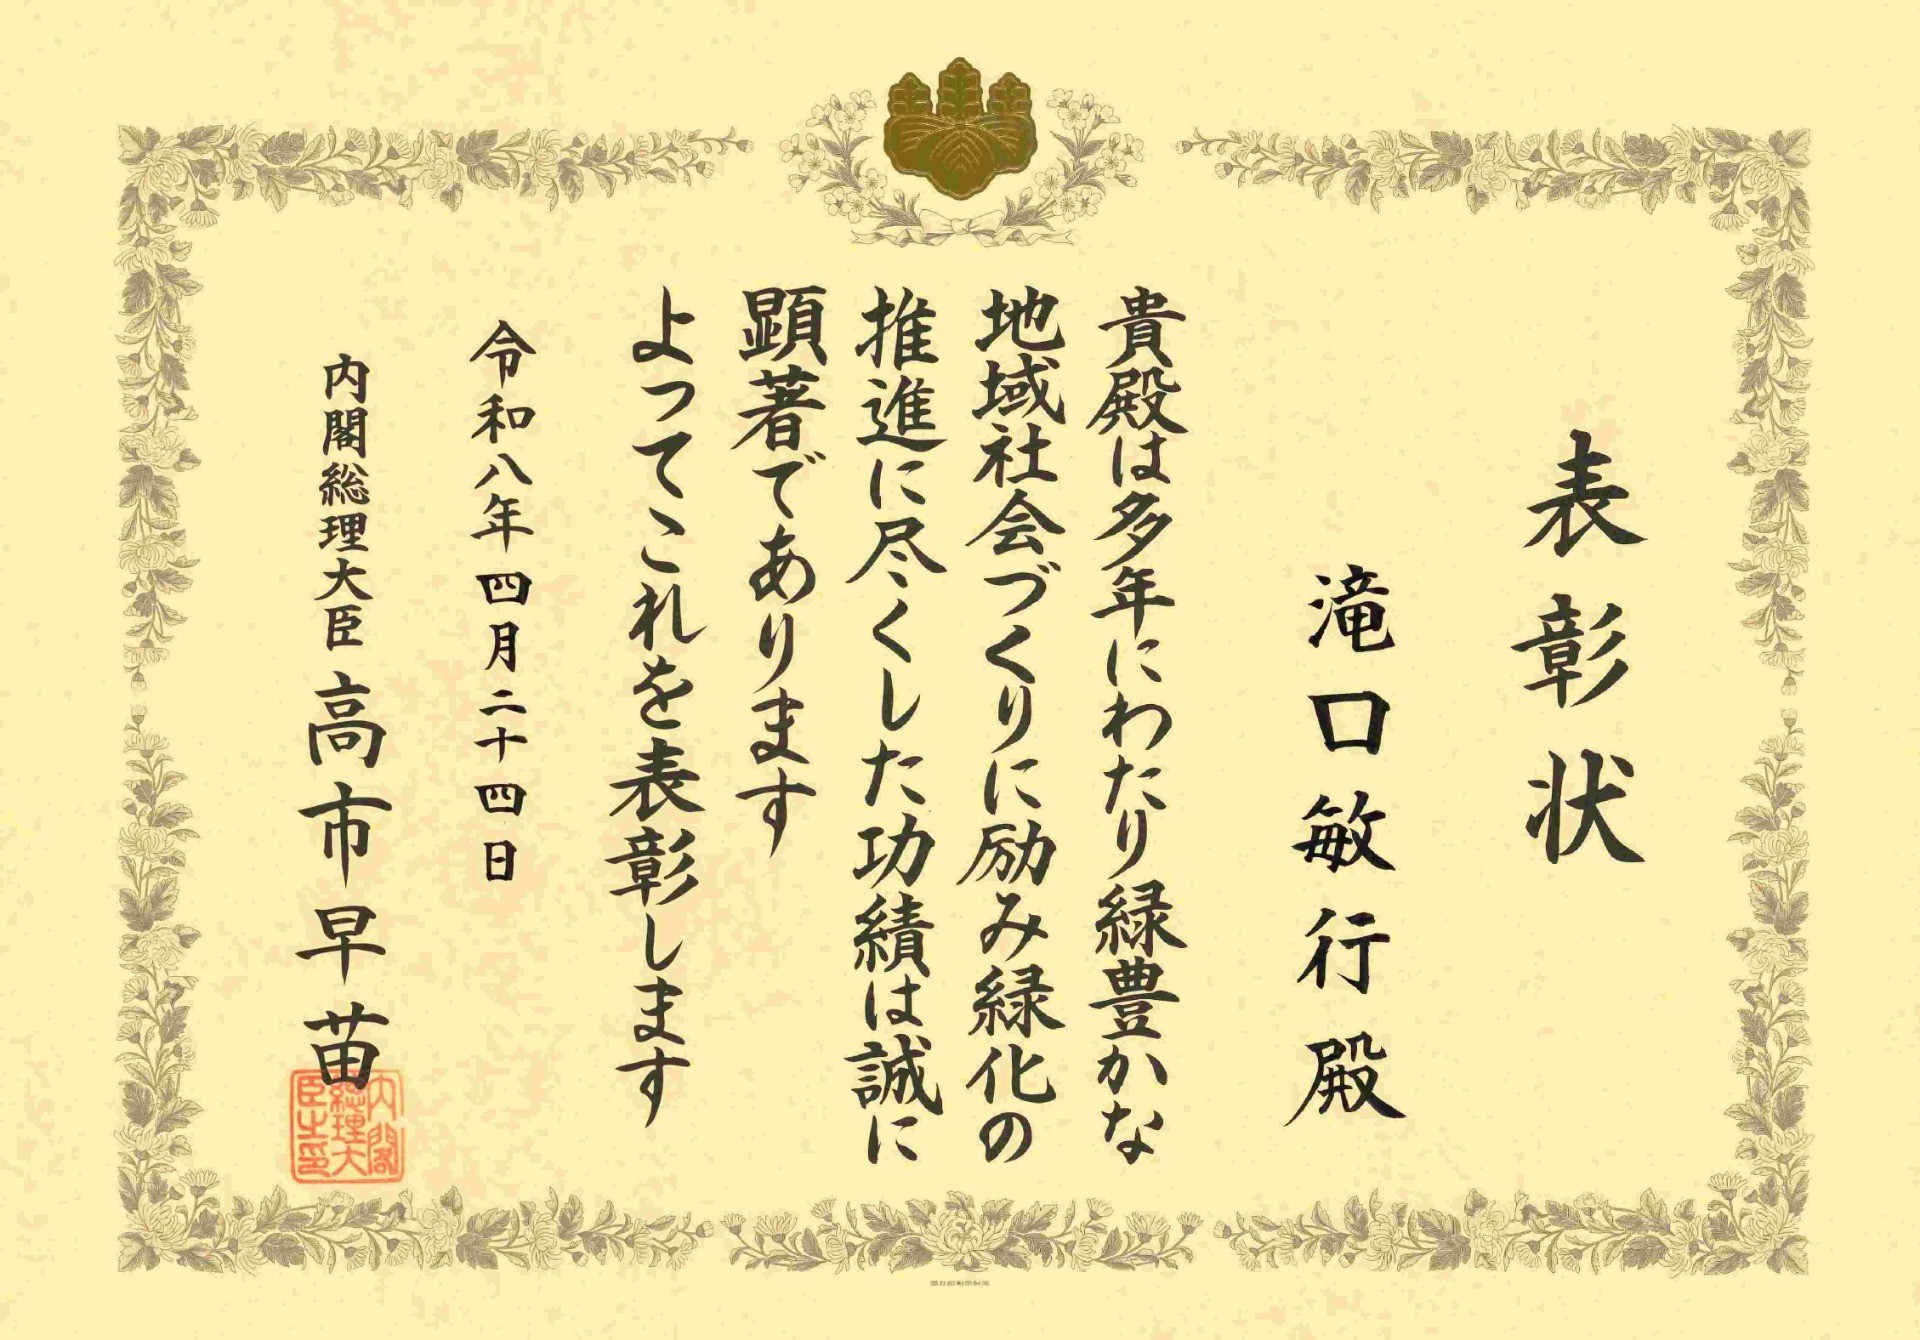 表彰状
滝口敏行殿
貴殿は多年にわたり緑豊かな
地域社会づくりに励み緑化の
推進に尽くした功績は誠に
顕著であります
よってこれを表彰します
令和八年四月二十四日
内閣総理大臣 高市早苗
内閣
総理大
臣之印